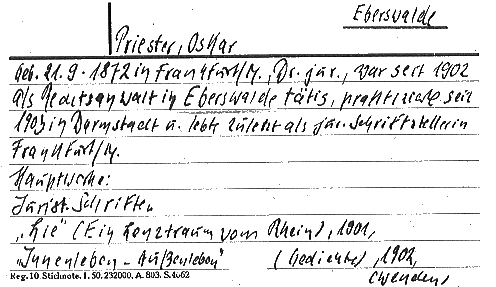 Eberswalde
Priester, Oskar
Geb. 21.9.1872 in Frankfurt/M., Dr. jur., war seit 1902
als Rechtsanwalt in Eberswalde tätig, praktizierte seit
1903 in Darmstadt u. lebte zuletzt als jur. Schriftsteller in
Frankfurt/M.
Hauptwerke:
Jurist. Schriften
„Lie" (Ein Lenztraum vom Rhein), 1901,
„Innenleben - Außenleben" (Gedichte), 1902,
(wenden)
Reg. 10 Stichnote. I. 50. 232000, A. 803. S. 4062